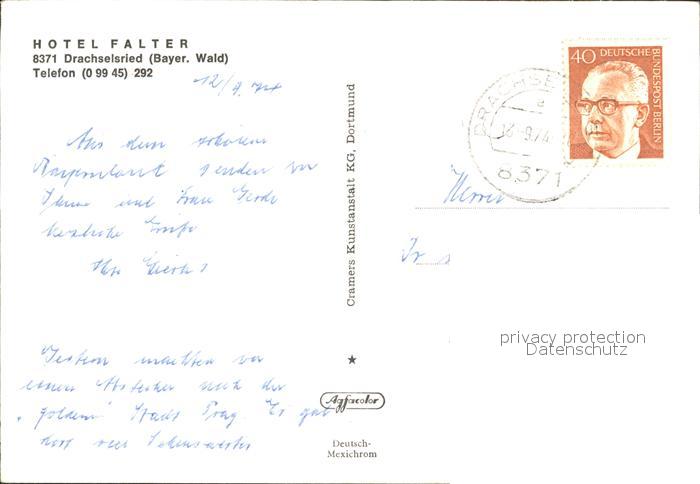 HOTEL FALTER
8371 Drachselsried (Bayer. Wald)
Telefon (0 99 45) 292
12/9. 74
Aus dem schönen
Bayernland senden wir
Ihnen und Frau Gerda
herzliche Grüße
Ihre
Gestern machten wir
einen Abstecher nach der
"goldenen" Stadt Prag. Es gab
dort viel Sehenswertes
Cramers Kunstanstalt KG, Dortmund
Agfacolor
Deutsch-
Mexichrom
40 DEUTSCHE
BUNDESPOST BERLIN
DRACHSE
a
-9.74
8371
Herrn
privacy protection
Datenschutz